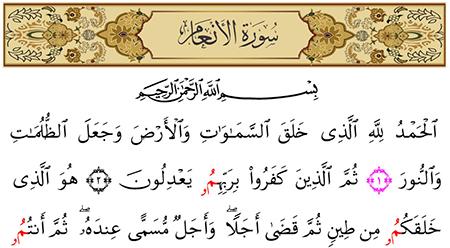 سُورَةُ الأَنْعَامِ
بِسْمِ ٱللَّهِ ٱلرَّحْمَٰنِ ٱلرَّحِيمِ
ٱلْحَمْدُ لِلَّهِ ٱلَّذِى خَلَقَ ٱلسَّمَٰوَٰتِ وَٱلْأَرْضَ وَجَعَلَ ٱلظُّلُمَٰتِ
وَٱلنُّورَ ﴿١﴾ ثُمَّ ٱلَّذِينَ كَفَرُوا۟ بِرَبِّهِمُۥ يَعْدِلُونَ ﴿٢﴾ هُوَ ٱلَّذِى
خَلَقَكُمُۥ مِن طِينٍ ثُمَّ قَضَىٰٓ أَجَلًا ۖ وَأَجَلٌ مُّسَمًّى عِندَهُۥ ۖ ثُمَّ أَنتُمُۥ